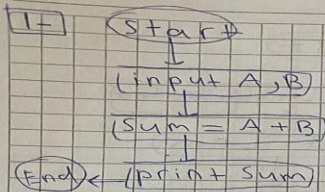 1-
Start
input A, B
Sum = A + B
print Sum
End